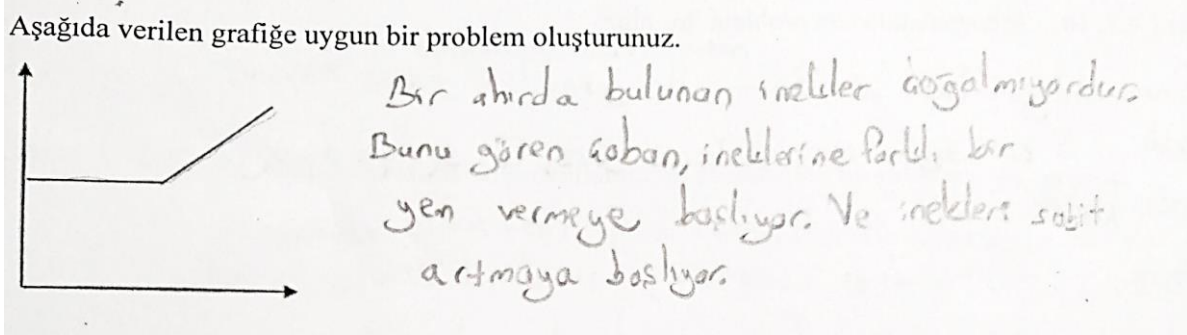 Aşağıda verilen grafiğe uygun bir problem oluşturunuz.
Bir ahırda bulunan inekler çoğalmıyordur.
Bunu gören çoban, ineklerine farklı bir
yem vermeye başlıyor. Ve inekleri sabit
artmaya başlıyor.